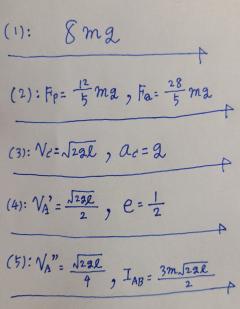 (1): 8mg
(2): Fp = 12/5 mg , Fa = 28/5 mg
(3): Vc = √2gl , ac = g
(4): VA' = √2gl/2 , e = 1/2
(5): VA'' = √2gl/4 , IAB = 3m√2gl/2